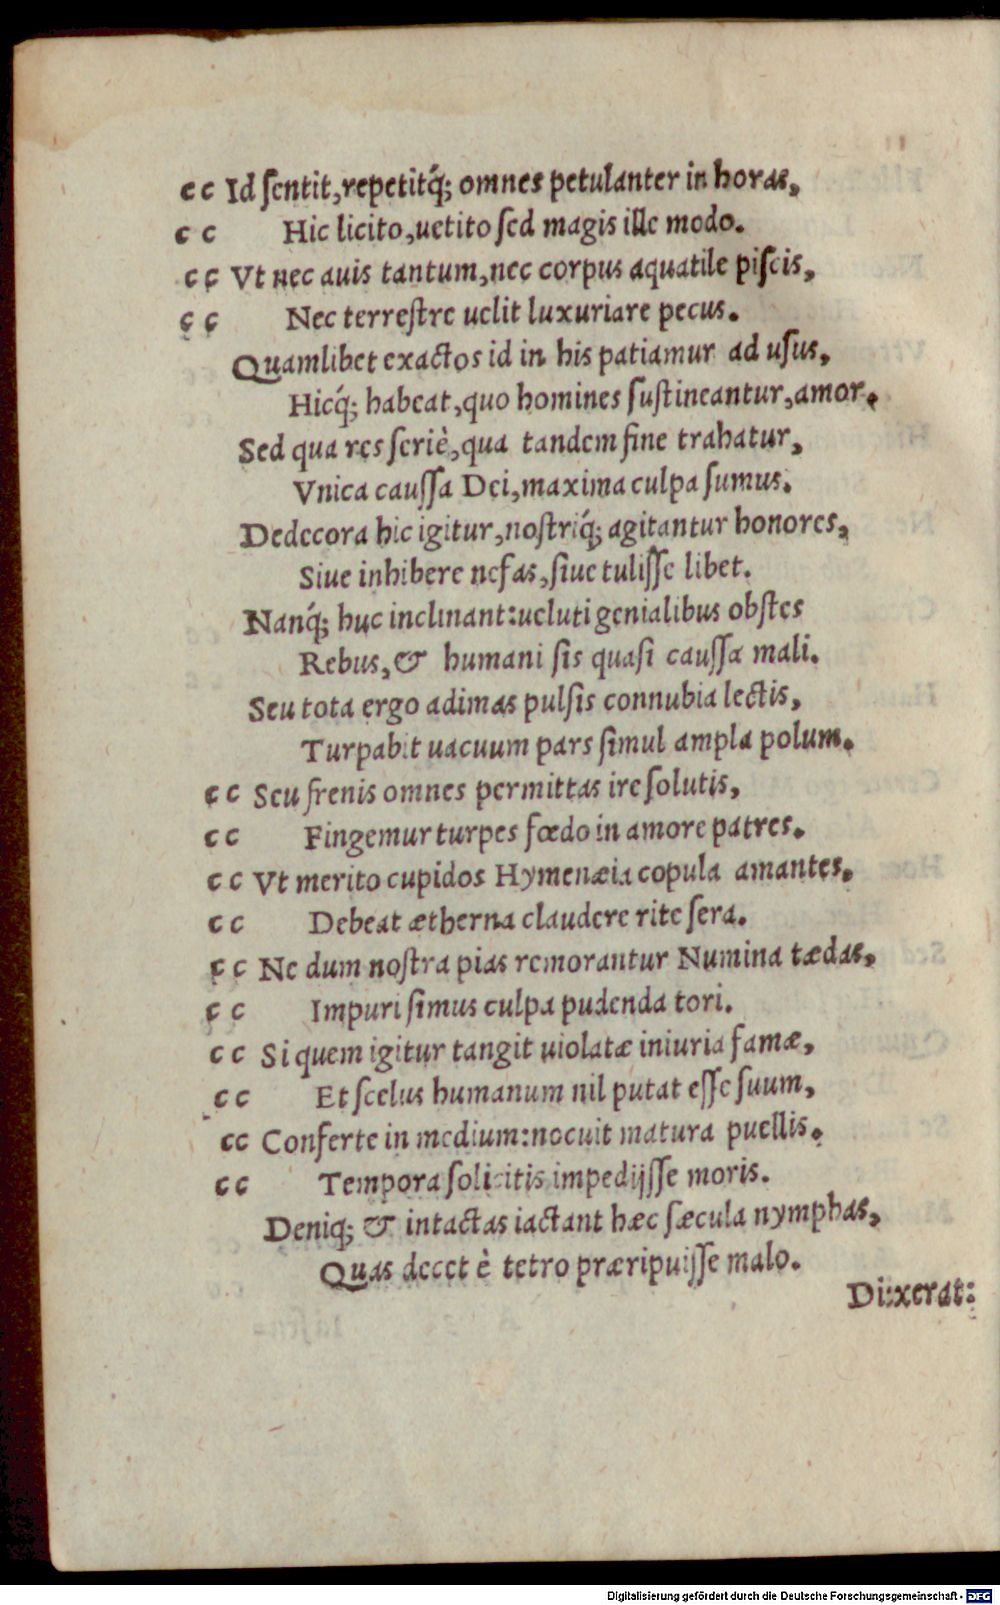 c c Id ſentit,repetitq́; omnes petulanter in horas,
c c Hic licito,uetito ſed magis ille modo.
c c Vt nec auis tantum,nec corpus aquatile piſcis,
c c Nec terreſtre uelit luxuriare pecus.
Quamlibet exactos id in his patiamur ad uſus,
Hicq́; habeat,quo homines ſuſtineantur,amor.
Sed qua res ſeriè,qua tandem fine trahatur,
Vnica cauſſa Dei,maxima culpa ſumus.
Dedecora hic igitur,noſtriq́; agitantur honores,
Siue inhibere nefas,ſiue tuliſſe libet.
Nanq́; huc inclinant:ueluti genialibus obſtes
Rebus,& humani ſis quaſi cauſſa mali.
Seu tota ergo adimas pulſis connubia lectis,
Turpabit uacuum pars ſimul ampla polum.
c c Seu frenis omnes permittas ire ſolutis,
c c Fingemur turpes fœdo in amore patres.
c c Vt merito cupidos Hymenæia copula amantes.
c c Debeat ætherna claudere rite ſera.
c c Ne dum noſtra pias remorantur Numina tædas,
c c Impuri ſimus culpa pudenda tori.
c c Si quem igitur tangit uiolatæ iniuria famæ,
c c Et ſcelus humanum nil putat eſſe ſuum,
cc Conferte in medium:nocuit matura puellis.
c c Tempora ſolicitis impedijſſe moris.
Deniq; & intactas iactant hæc ſæcula nymphas,
Quas decet è tetro præripuiſſe malo.
Dixerat:
Digitalisierung gefördert durch die Deutsche Forschungsgemeinschaft - DFG